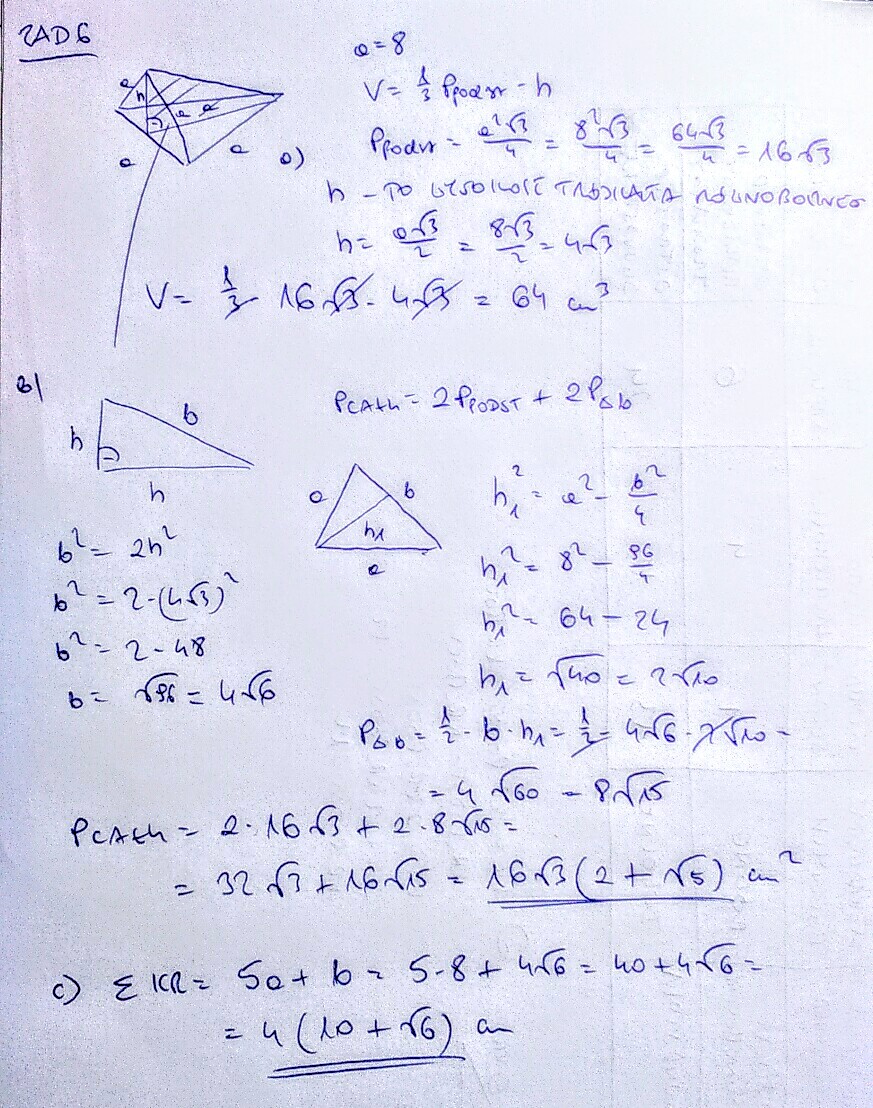 ZAD 6
a=8
V = 1/3 Ppodst · h
a) Ppodst = a²√3/4 = 8²√3/4 = 64√3/4 = 16√3
h - TO WYSOKOŚĆ TRÓJKĄTA RÓWNOBOCZNEGO
h = a√3/2 = 8√3/2 = 4√3
V = 1/3 · 16√3 · 4√3 = 64 cm³
b) PCAŁK = 2PPODST + 2P△b
h b h
a b h₁ a
b² = 2h²
b² = 2·(4√3)²
b² = 2·48
b = √96 = 4√6
h₁² = a² - b²/4
h₁² = 8² - 96/4
h₁² = 64 - 24
h₁ = √40 = 2√10
P△b = 1/2 · b · h₁ = 1/2 · 4√6 · 2√10 =
= 4√60 = 8√15
PCAŁK = 2·16√3 + 2·8√15 =
= 32√3 + 16√15 = 16√3(2+√5) cm²
c) Σ KR = 5a + b = 5·8 + 4√6 = 40 + 4√6 =
= 4(10+√6) cm